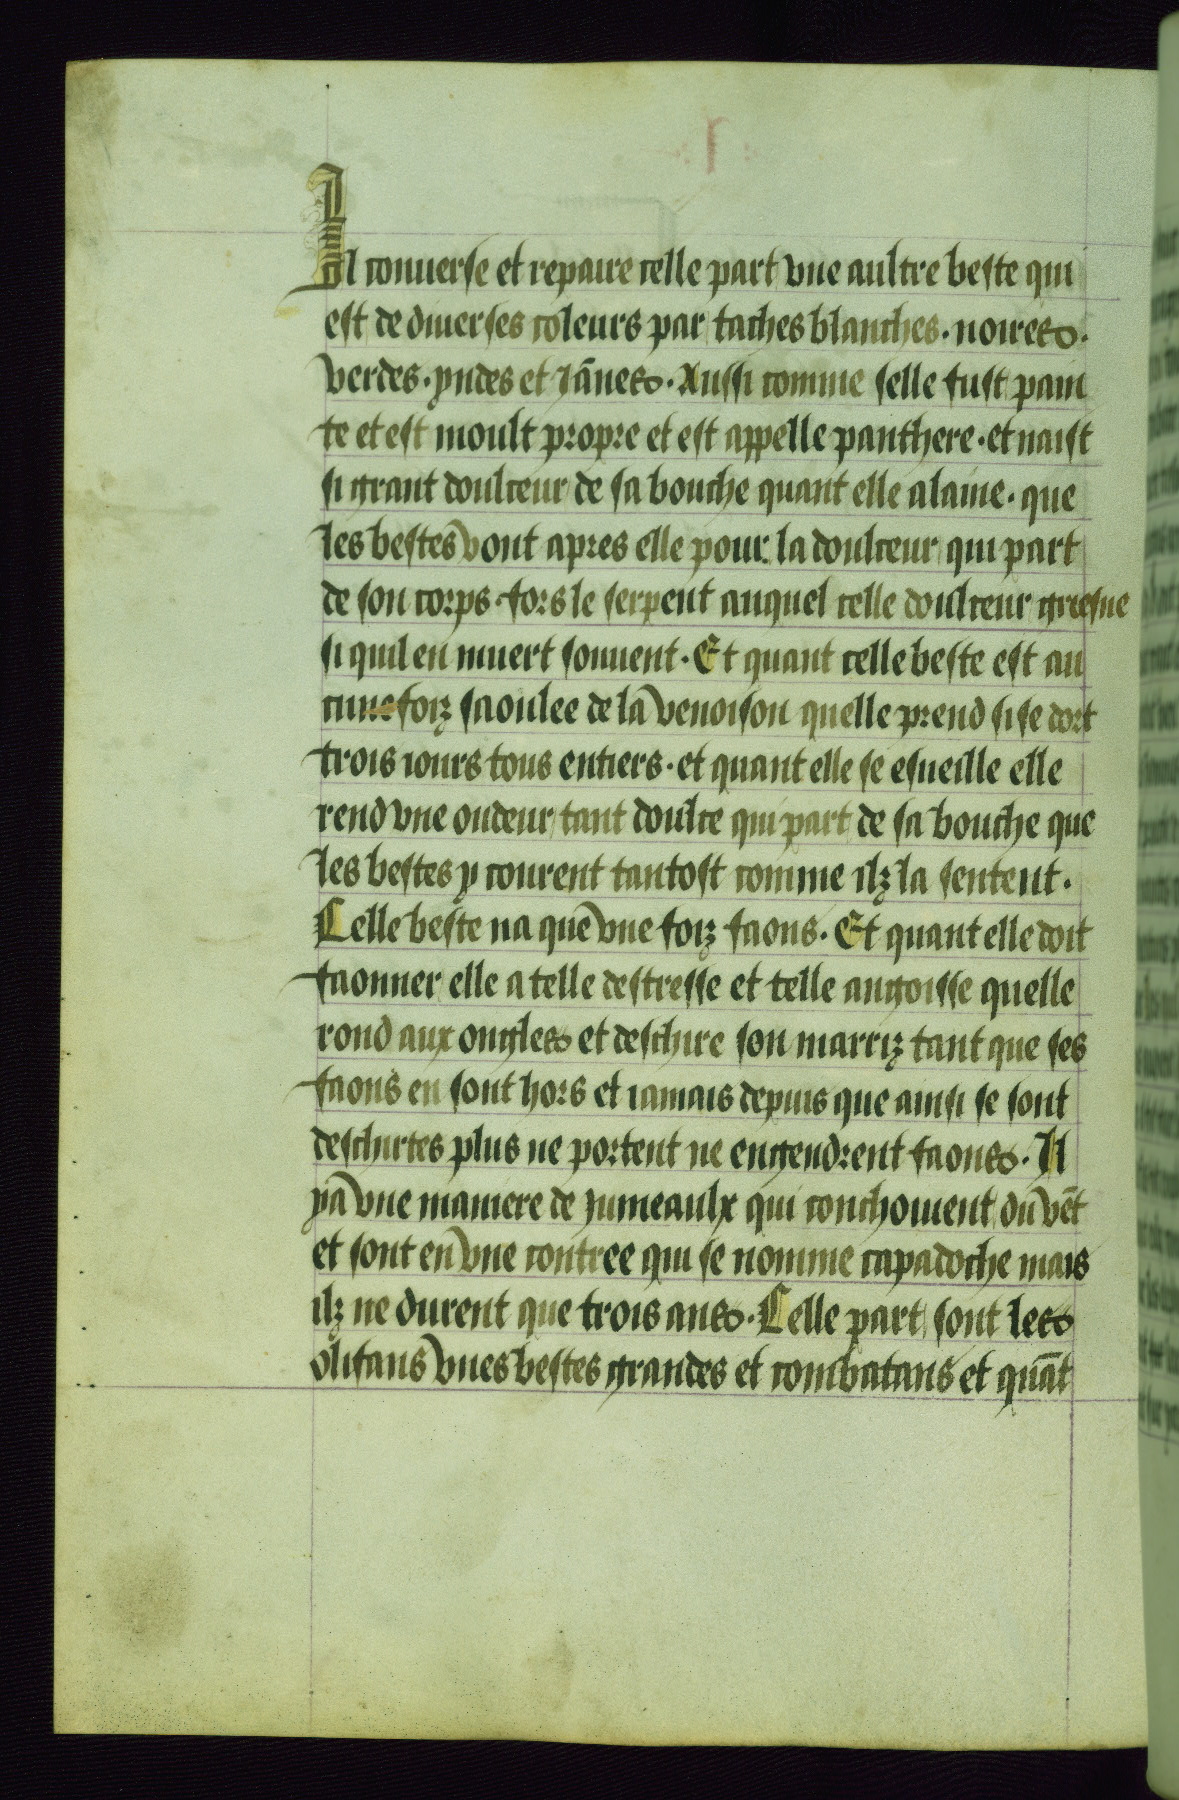 Il conuerse et repaire celle part vne aultre beste qui
est de diuerses coleurs par taches blanches. noires.
verdes. yndes et iãnes. Aussi comme selle fust pain
te et est moult propre et est appelle panthere. et naist
si grant doulceur de sa bouche quant elle alaine. que
les bestes vont apres elle pour la doulceur qui part
de son corps. fors le serpent auquel celle doulceur griesue
si quil en muert souuent. Et quant celle beste est au
cune foiz saoulee de la venoison quelle prend si se dort
trois iours tous entiers. et quant elle se esueille elle
rend vne oudeur tant doulce qui part de sa bouche que
les bestes y courent tantost comme ilz la sentent.
Celle beste na que vne foiz faons. Et quant elle doit
faonner elle a telle destresse et telle angoisse quelle
rond aux ongles et deschire son marriz tant que ses
faons en sont hors et iamais depuis que ainsi se sont
deschirees plus ne portent ne engendrent faons. Il
ya vne maniere de jumeaulx qui conchoiuent du vẽt
et sont en vne contree qui se nomme capadoche mais
ilz ne durent que trois ans. Celle part sont les
olifans vnes bestes grandes et combatans et quãt